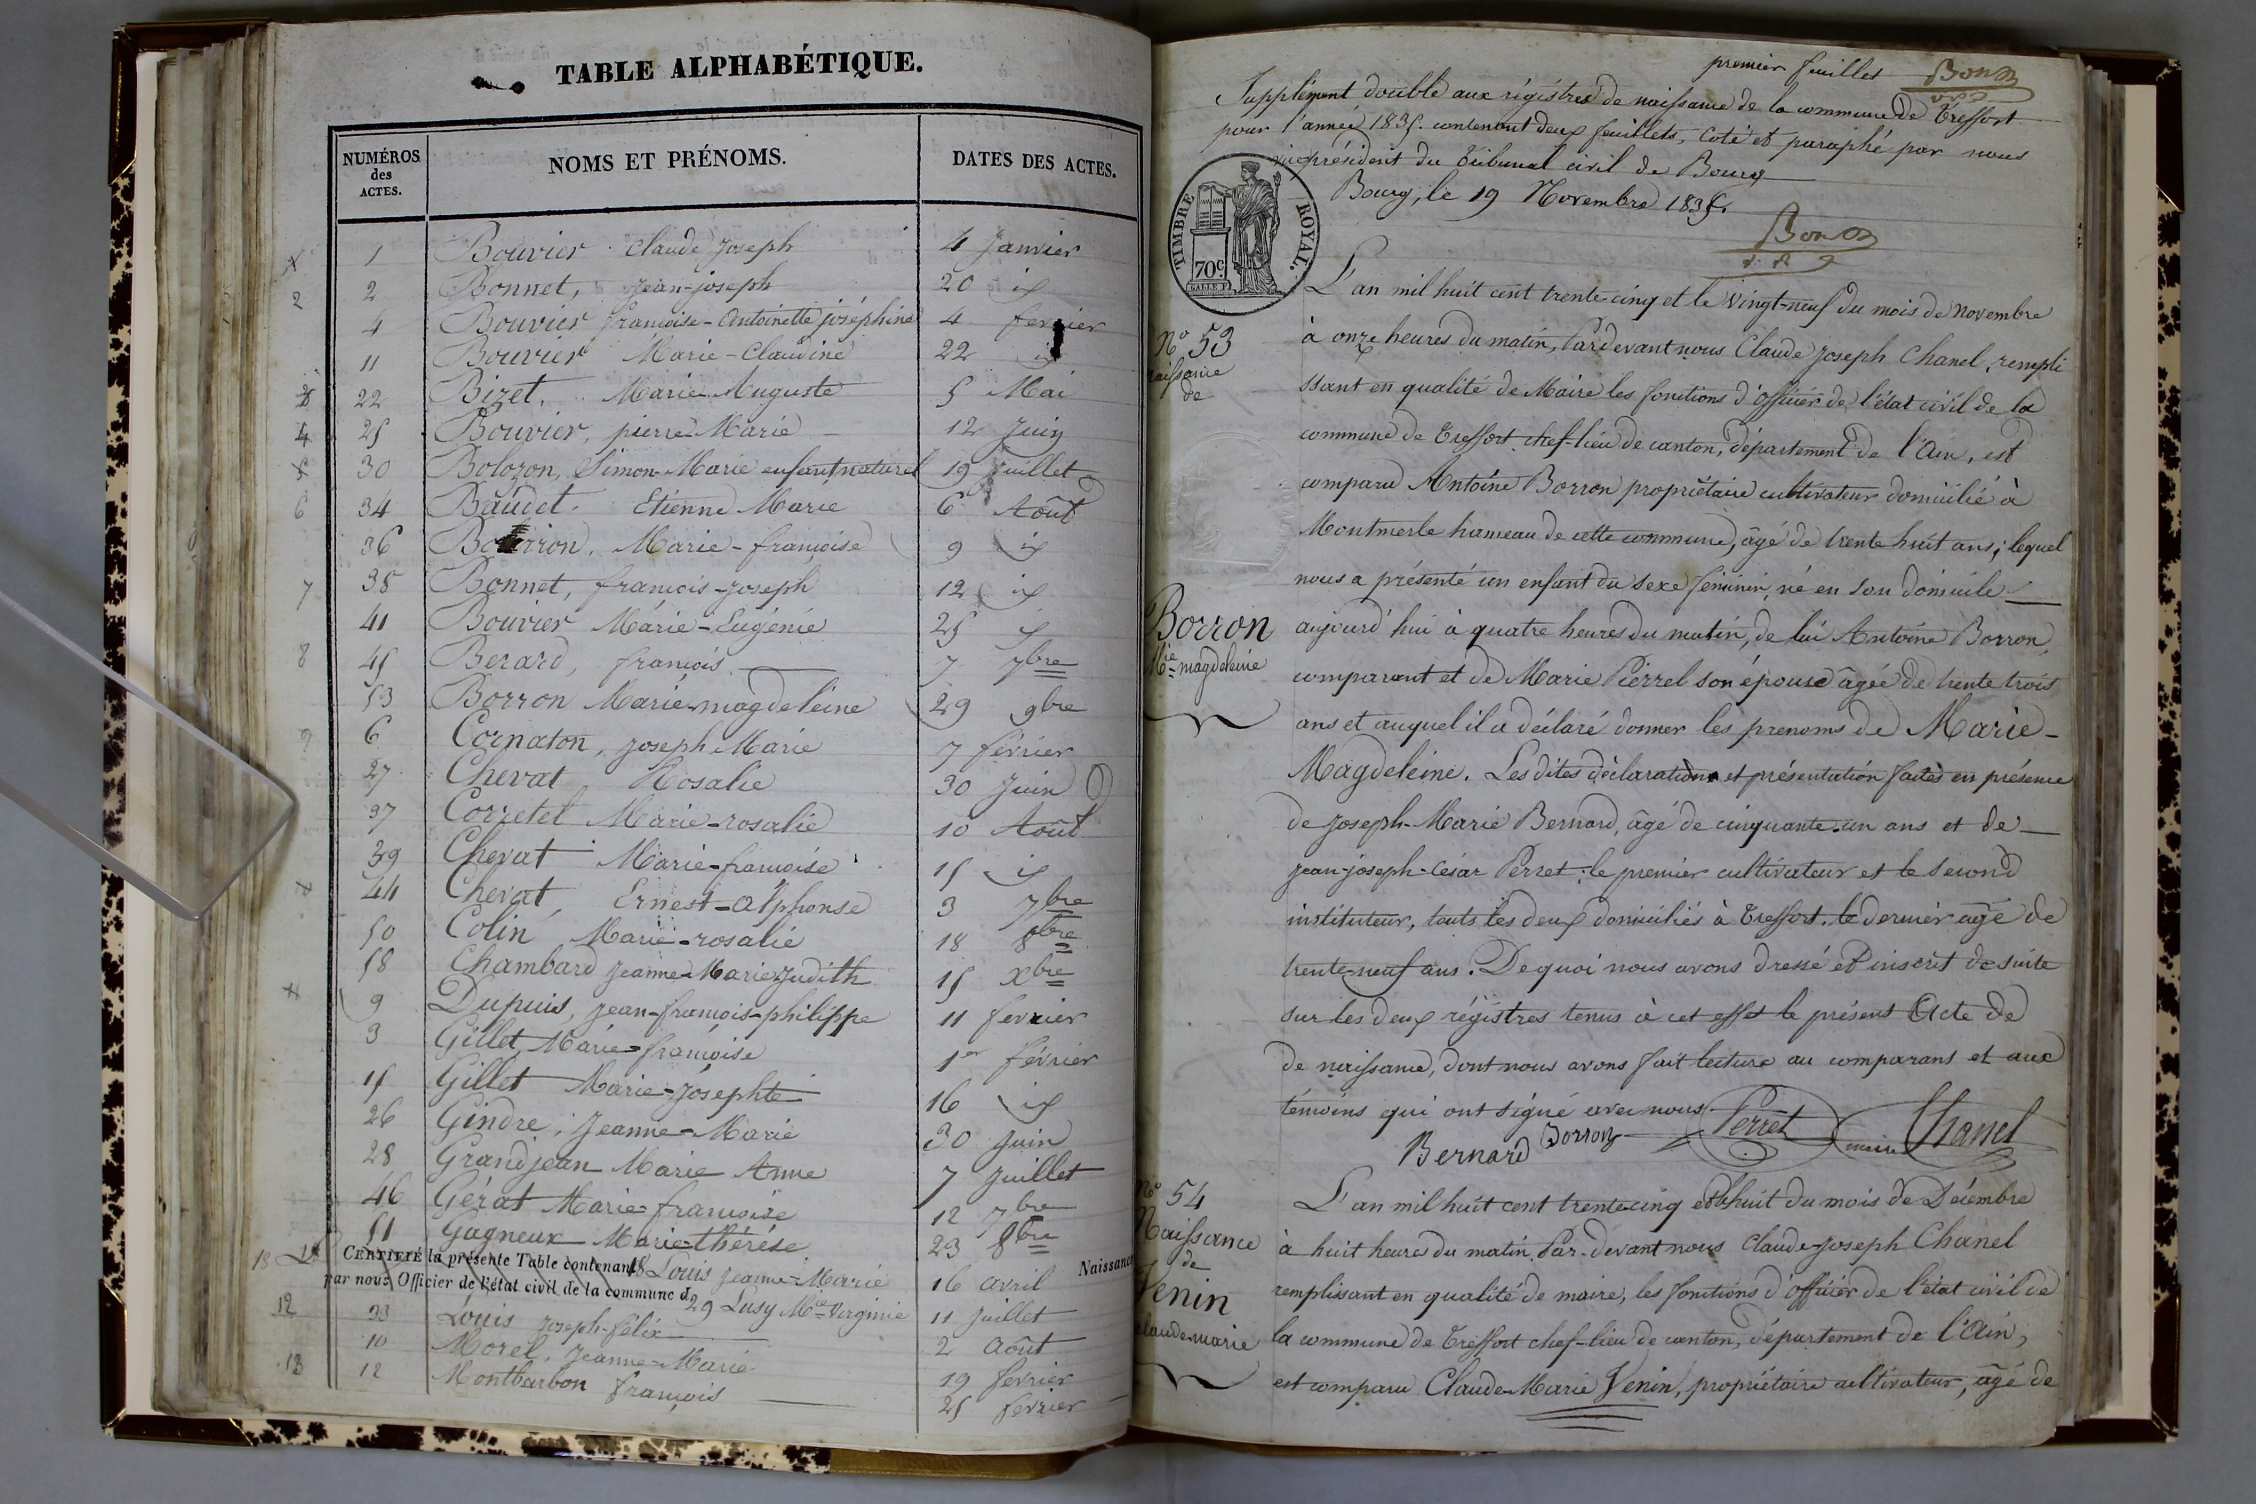 TABLE ALPHABÉTIQUE.
NUMÉROS des ACTES. NOMS ET PRÉNOMS. DATES DES ACTES.
1 Bouvier Claude Joseph 4 Janvier
2 2 Bonnet, Jean-joseph 20 id
4 Bouvier françoise-Antoinette joséphine 4 fevrier
11 Bouvier Marie-Claudine 22 id
22 Bizet, Marie Auguste 5 Mai
4 25 Bouvier, pierre-Marie 12 Juin
5 30 Bolozon, Simon-Marie enfant naturel 19 Juillet
6 34 Baudet. Etienne Marie 6 Août
36 Borron, Marie-françoise 9 id
7 38 Bonnet, françois-joseph 12 id
41 Bouvier Marie-Eugénie 25 id
8 45 Berard, françois 7 7bre
53 Borron Marie-magdeleine 29 9bre
9 6 Cornaton, joseph Marie 7 février
27 Chevat Rosalie 30 Juin
37 Corretel Marie-rosalie 10 Août
39 Chevat Marie-françoise 15 id
44 Chevat, Ernest-alphonse 3 7bre
50 Colin Marie-rosalie 18 8bre
58 Chambard Jeanne-Marie-Judith 15 Xbre
9 Dupuis, Jean-françois-philippe 11 fevrier
3 Gillet Marie-françoise 1er février
15 Gillet Marie-Josephte 16 id
26 Gindre, Jeanne-Marie 30 Juin
28 Grandjean Marie Anne 7 Juillet
46 Gérat Marie-françoise 12 7bre
51 Gagneux Marie-thérèse 23 8bre
CERTIFIÉ la présente Table contenant Naissance
18 Louis jeanne-Marie 16 avril
par nous Officier de l'état civil de la commune d
29 Lusy Mie-Virginie 11 Juillet
12 33 Louis Joseph-félix 2 Août
10 Morel, Jeanne-Marie 19 fevrier
13 12 Montbarbon françois 25 fevrier
premier feuillet
Supplément double aux régistres de naissance de la commune de Treffort
pour l'année 1835. contenant deux feuillets, coté et paraphé par nous
vice président du Tribunal civil de Bourg
Bourg, le 19 Novembre 1835.
TIMBRE ROYAL.
70c
L'an mil huit cent trente-cinq et le vingt-neuf du mois de novembre
No 53
naissance
de
Borron
Mie magdeleine
à onze heures du matin, Pardevant nous Claude Joseph Chanel, rempli
ssant en qualité de Maire les fonctions d'officier de l'état civil de la
commune de Treffort chef-lieu de canton, département de l'Ain, est
comparu Antoine Borron propriétaire cultivateur domicilié à
Montmerle hameau de cette commune, âgé de trente huit ans; lequel
nous a présenté un enfant du sexe féminin, né en son domicile
aujourd'hui à quatre heures du matin, de lui Antoine Borron,
comparant et de Marie Pierrel son épouse âgée de trente trois
ans et auquel il a déclaré donner les prenoms de Marie-
Magdeleine. Les dites déclaration et présentation faites en présence
de Joseph-Marie Bernard, âgé de cinquante-un ans et de
jean-joseph-César Perret; le premier cultivateur et le second
instituteur, touts les deux domiciliés à Treffort, le dernier âgé de
trente-neuf ans. De quoi nous avons dressé et inscrit de suite
sur les deux régistres tenus à cet effet le présent Acte de
de naissance, dont nous avons fait lecture au comparant et aux
témoins qui ont signé avec nous.
Bernard Borron Perret maire Chanel
No 54
Naissance
de
Venin
Claude-marie
L'an mil huit cent trente-cinq et le huit du mois de Décembre
à huit heures du matin, Par-devant nous Claude-Joseph Chanel
remplissant en qualité de maire, les fonctions d'officier de l'état civil de
la commune de Treffort chef-lieu de canton, département de l'Ain,
est comparu Claude-Marie Venin, propriétaire cultivateur, âgé de